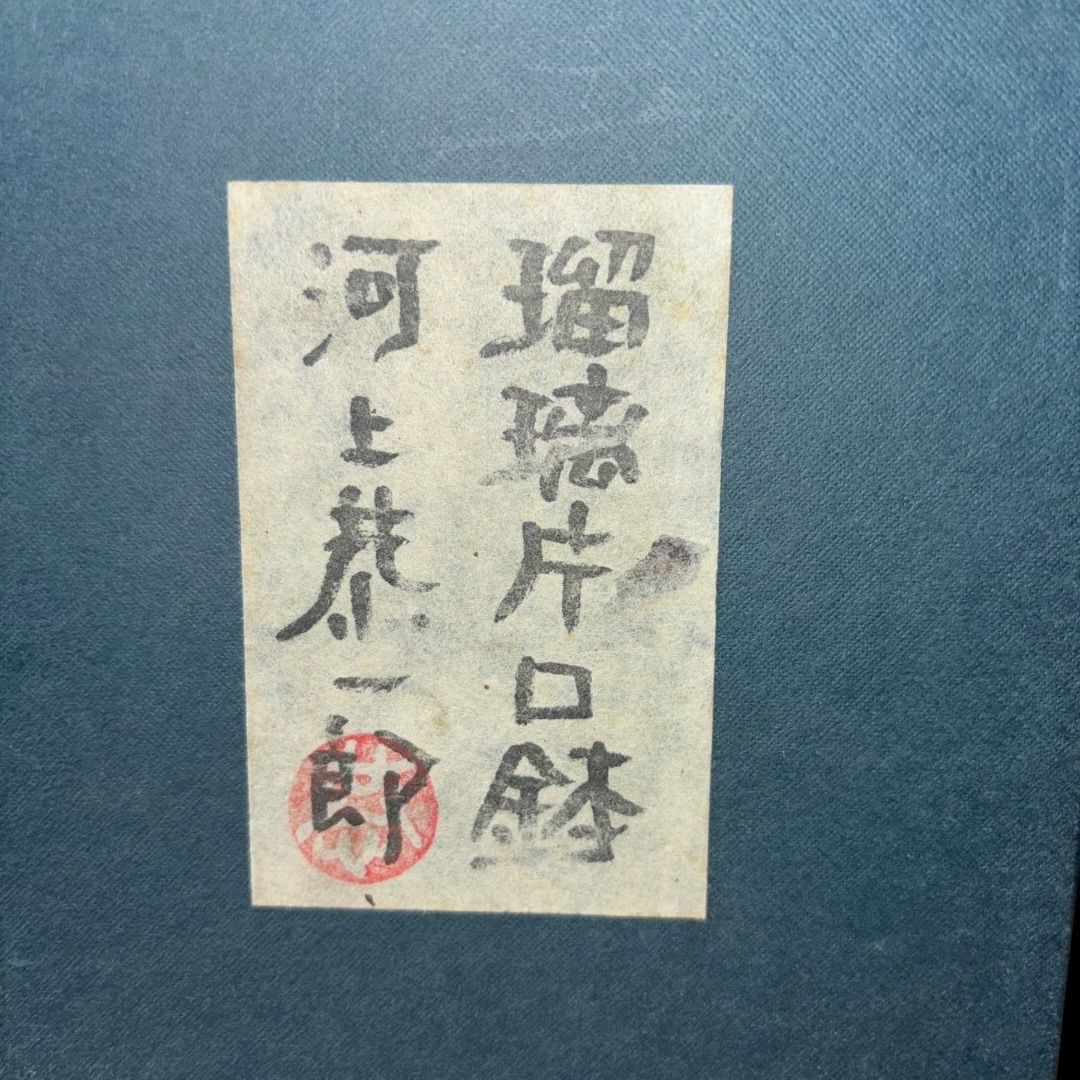 瑠璃片口鉢
河上恭一郎
恭